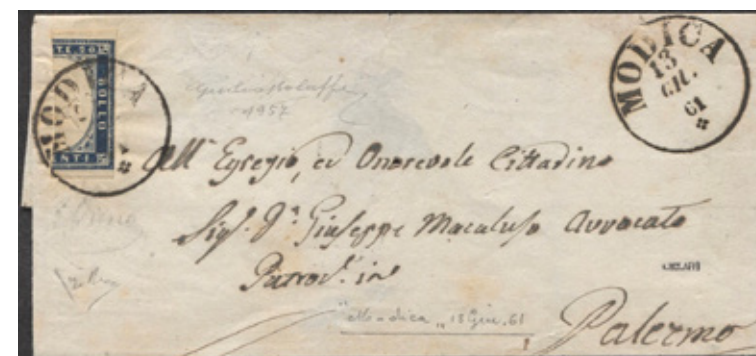 T.E. 20
BOLLO
NTE.
MODICA
MODICA
13
GIU.
61
1957
All' Egregio, ed Onorevole Cittadino
Sigr. Dn. Giuseppe Macaluso Avvocato
Patrocr. in
Palermo
"Modica" 13 Giu. 61